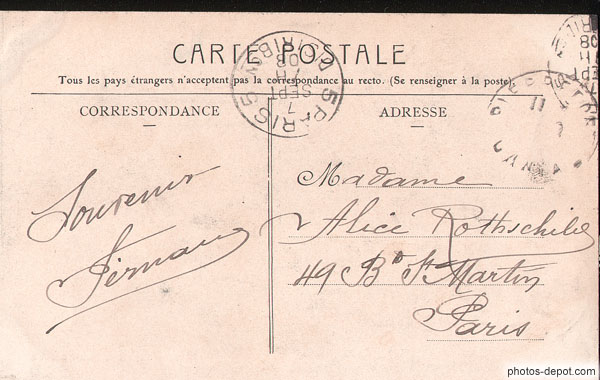 CARTE POSTALE
Tous les pays étrangers n'acceptent pas la correspondance au recto. (Se renseigner à la poste).
CORRESPONDANCE
ADRESSE
Souvenir
Fernand
Madame
Alice Rothschild
49 Bd St Martin
Paris
PARIS
7
SEPT
08
photos-depot.com